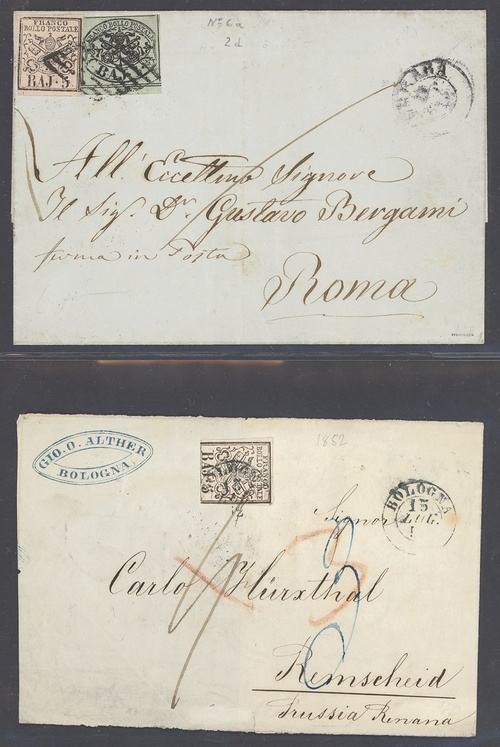 FRANCO
BOLLO POSTALE
BAJ. 5
FRANCO BOLLO POSTALE
BAJ
No 6a
2d
All' Eccellmo Signore
Il Sig. Dr. Gustavo Bergami
ferma in Posta
Roma
GIO. O. ALTHER
BOLOGNA
FRANCO
BOLLO POSTALE
BAJ. 5
1852
BOLOGNA
15
LUG.
Signor
Carlo Hürxthal
3
Remscheid
Prussia Renana